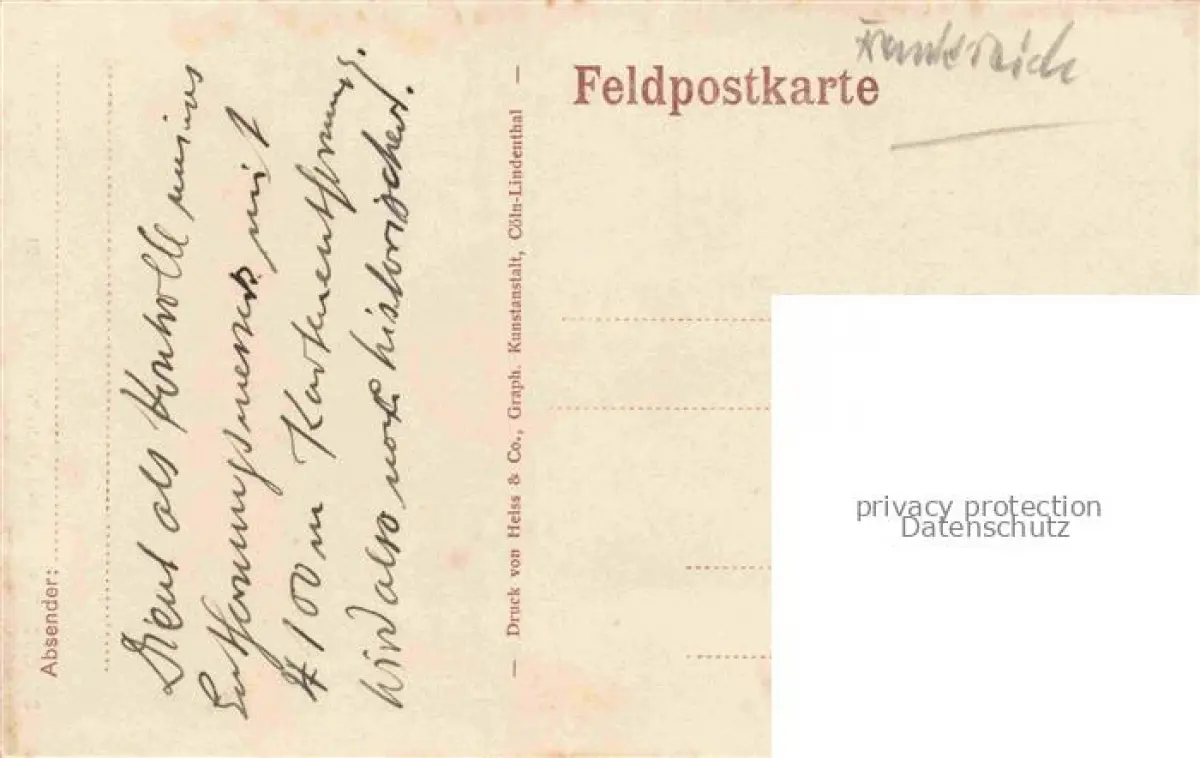 Frankreich
Feldpostkarte
Absender:
Dient als Kontrolle meines
Entfernungsmessers mit
100 m Kartenentfernung.
Wird also noch historischer.
— Druck von Heiss & Co., Graph. Kunstanstalt, Cöln-Lindenthal —
privacy protection
Datenschutz